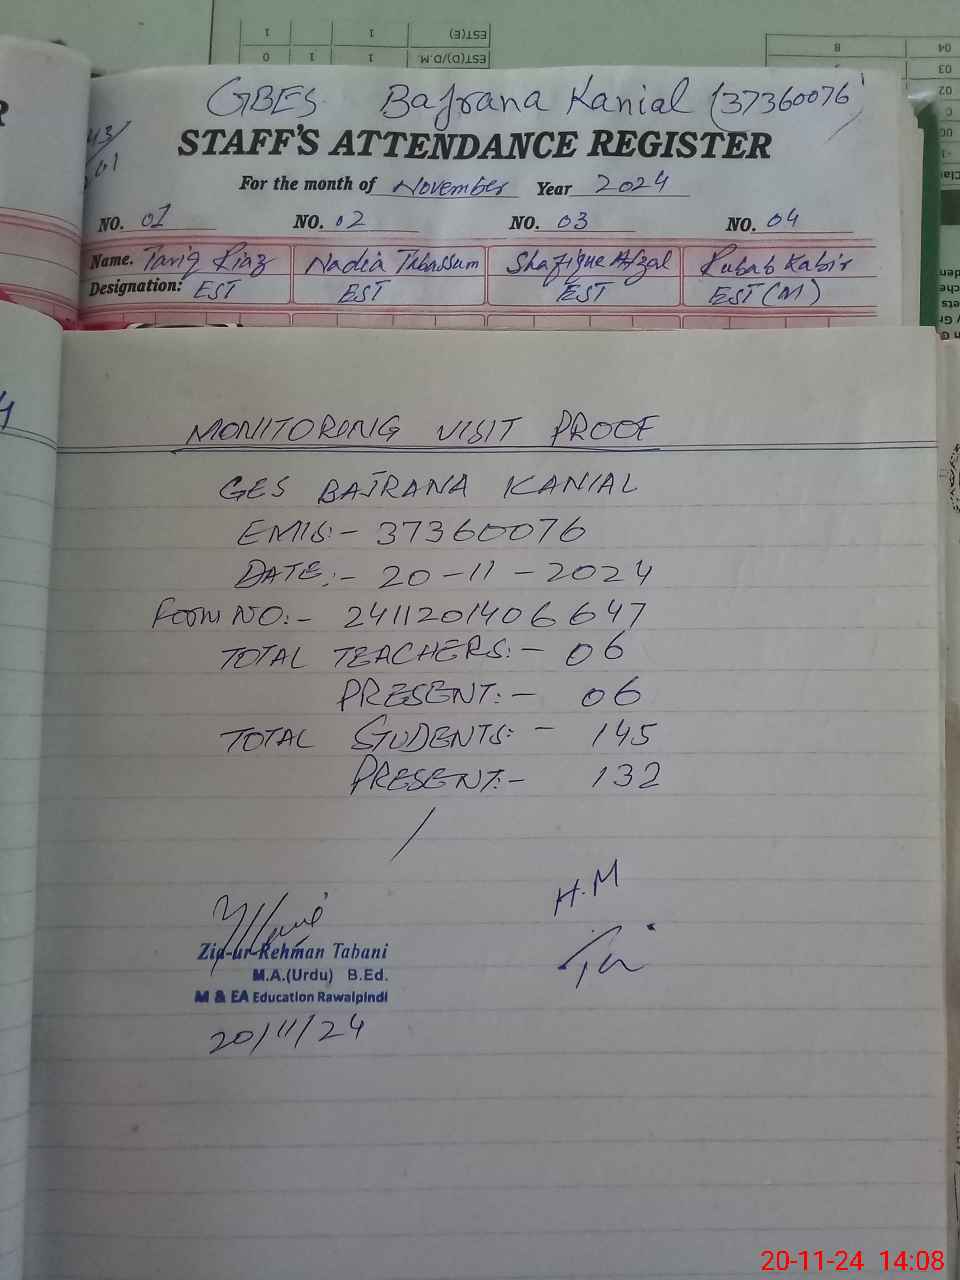 GBES Bajrana Kanial (37360076)
STAFF'S ATTENDANCE REGISTER
For the month of November Year 2024
NO. 01 NO. 02 NO. 03 NO. 04
Name. Tariq Riaz Nadia Tabassum Shafique Afzal Rubab Kabir
Designation: EST EST EST EST (M)
MONITORING VISIT PROOF
GES BAJRANA KANIAL
EMIS:- 37360076
DATE:- 20-11-2024
FORM NO:- 2411201406647
TOTAL TEACHERS:- 06
PRESENT:- 06
TOTAL STUDENTS:- 145
PRESENT:- 132
H.M
Zia-ur-Rehman Tabani
M.A.(Urdu) B.Ed.
M & EA Education Rawalpindi
20/11/24
20-11-24 14:08